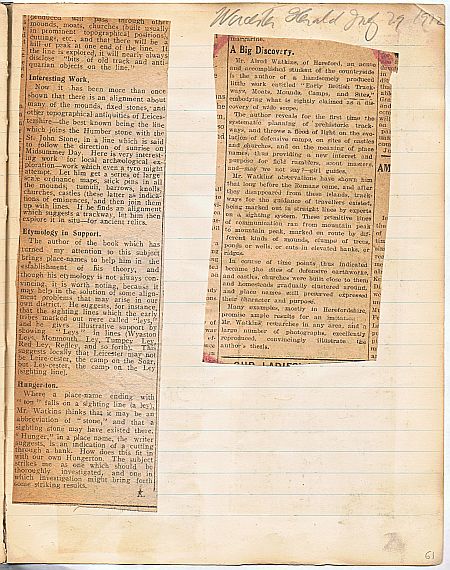 Worcester Herald July 29 1922
produced will pass through other
mounds, moats, churches (built usually
in prominent topographical positions),
cuttings, etc., and that there will be a
hill or peak at one end of the line. If
the line is explored, it will nearly always
disclose "bits of old track and anti-
quarian objects on the line."
Interesting Work.
Now it has been more than once
shown that there is an alignment about
many of the mounds, fixed stones, and
other topographical antiquities of Leices-
tershire—the best known being the line
which joins the Humber stone with the
St. John Stone, in a line which is said
to follow the direction of sunrise on
Midsummer Day. Here is very interest-
ing work for local archæological ex-
ploration—work which even a tyro might
attempt. Let him get a series of large
scale ordnance maps, stick pins in all
the mounds, tumuli, barrows, knolls,
churches, castles (these latter as indica-
tions of eminences), and then join them
up with lines. If he finds an alignment
which suggests a trackway, let him then
explore it in situ—for ancient relics.
Etymology in Support.
The author of the book which has
turned my attention to this subject
brings place-names to help him in the
establishment of his theory, and
though his etymology is not always con-
vincing, it is worth noting, because it
may help in the solution of some align-
ment problems that may arise in our
own district. He suggests, for instance,
that the sighting lines which the early
tribes marked out were called "leys,"
and he gives illustrative support by
showing "Leys" in lines (Wyaston
Leys, Monmouth, Ley, Tumpey Ley,
Red Ley, Redley, and so forth). This
suggests locally that Leicester may not
be Leire-cester, the camp on the Soar,
but Ley-cester, the camp on the Ley
(sighting line).
Hunger-ton.
Where a place-name ending with
"ton" falls on a sighting line (a ley),
Mr. Watkins thinks that it may be an
abbreviation of "stone," and that a
sighting stone may have existed there.
"Hunger," in a place name, the writer
suggests, is an indication of a cutting
through a bank. How does this fit in
with our own Hungerton. The subject
strikes me as one which should be
thoroughly investigated, and one in
which investigation might bring forth
some striking results.
margarine.
A Big Discovery.
Mr. Alfred Watkins, of Hereford, an acute
and accomplished student of the countryside
is the author of a handsomely produced
little work entitled "Early British Track-
ways, Moats, Mounds, Camps, and Sites,"
embodying what is rightly claimed as a dis-
covery of wide scope.
The author reveals for the first time the
systematic planning of prehistoric track-
ways, and throws a flood of light on the evo-
lution of defensive camps, on sites of castles
and churches, and on the meaning of place
names, thus providing a new interest and
purpose for field ramblers, scout masters,
and—may we not say?—girl guides.
Mr. Watkins' observations have shown him
that long before the Romans came, and after
they disappeared from these islands, track-
ways for the guidance of travellers existed,
being marked out in straight lines by experts
on a sighting system. These primitive lines
of communication ran from mountain peak
to mountain peak, marked en route by dif-
ferent kinds of mounds, clumps of trees,
ponds or wells, or cuts in elevated banks, or
ridges.
In course of time points thus indicated
became the sites of defensive earthworks,
and castles, churches were built close to them
and homesteads gradually clustered around,
and place names still preserved expressed
their character and purpose.
Many examples, mostly in Herefordshire,
promise ample results for an imitation
Mr. Watkins' researches in any area, and a
large number of photographs, excellently
reproduced, convincingly illustrate the
author's thesis.
OUR LADIES'
AM
61